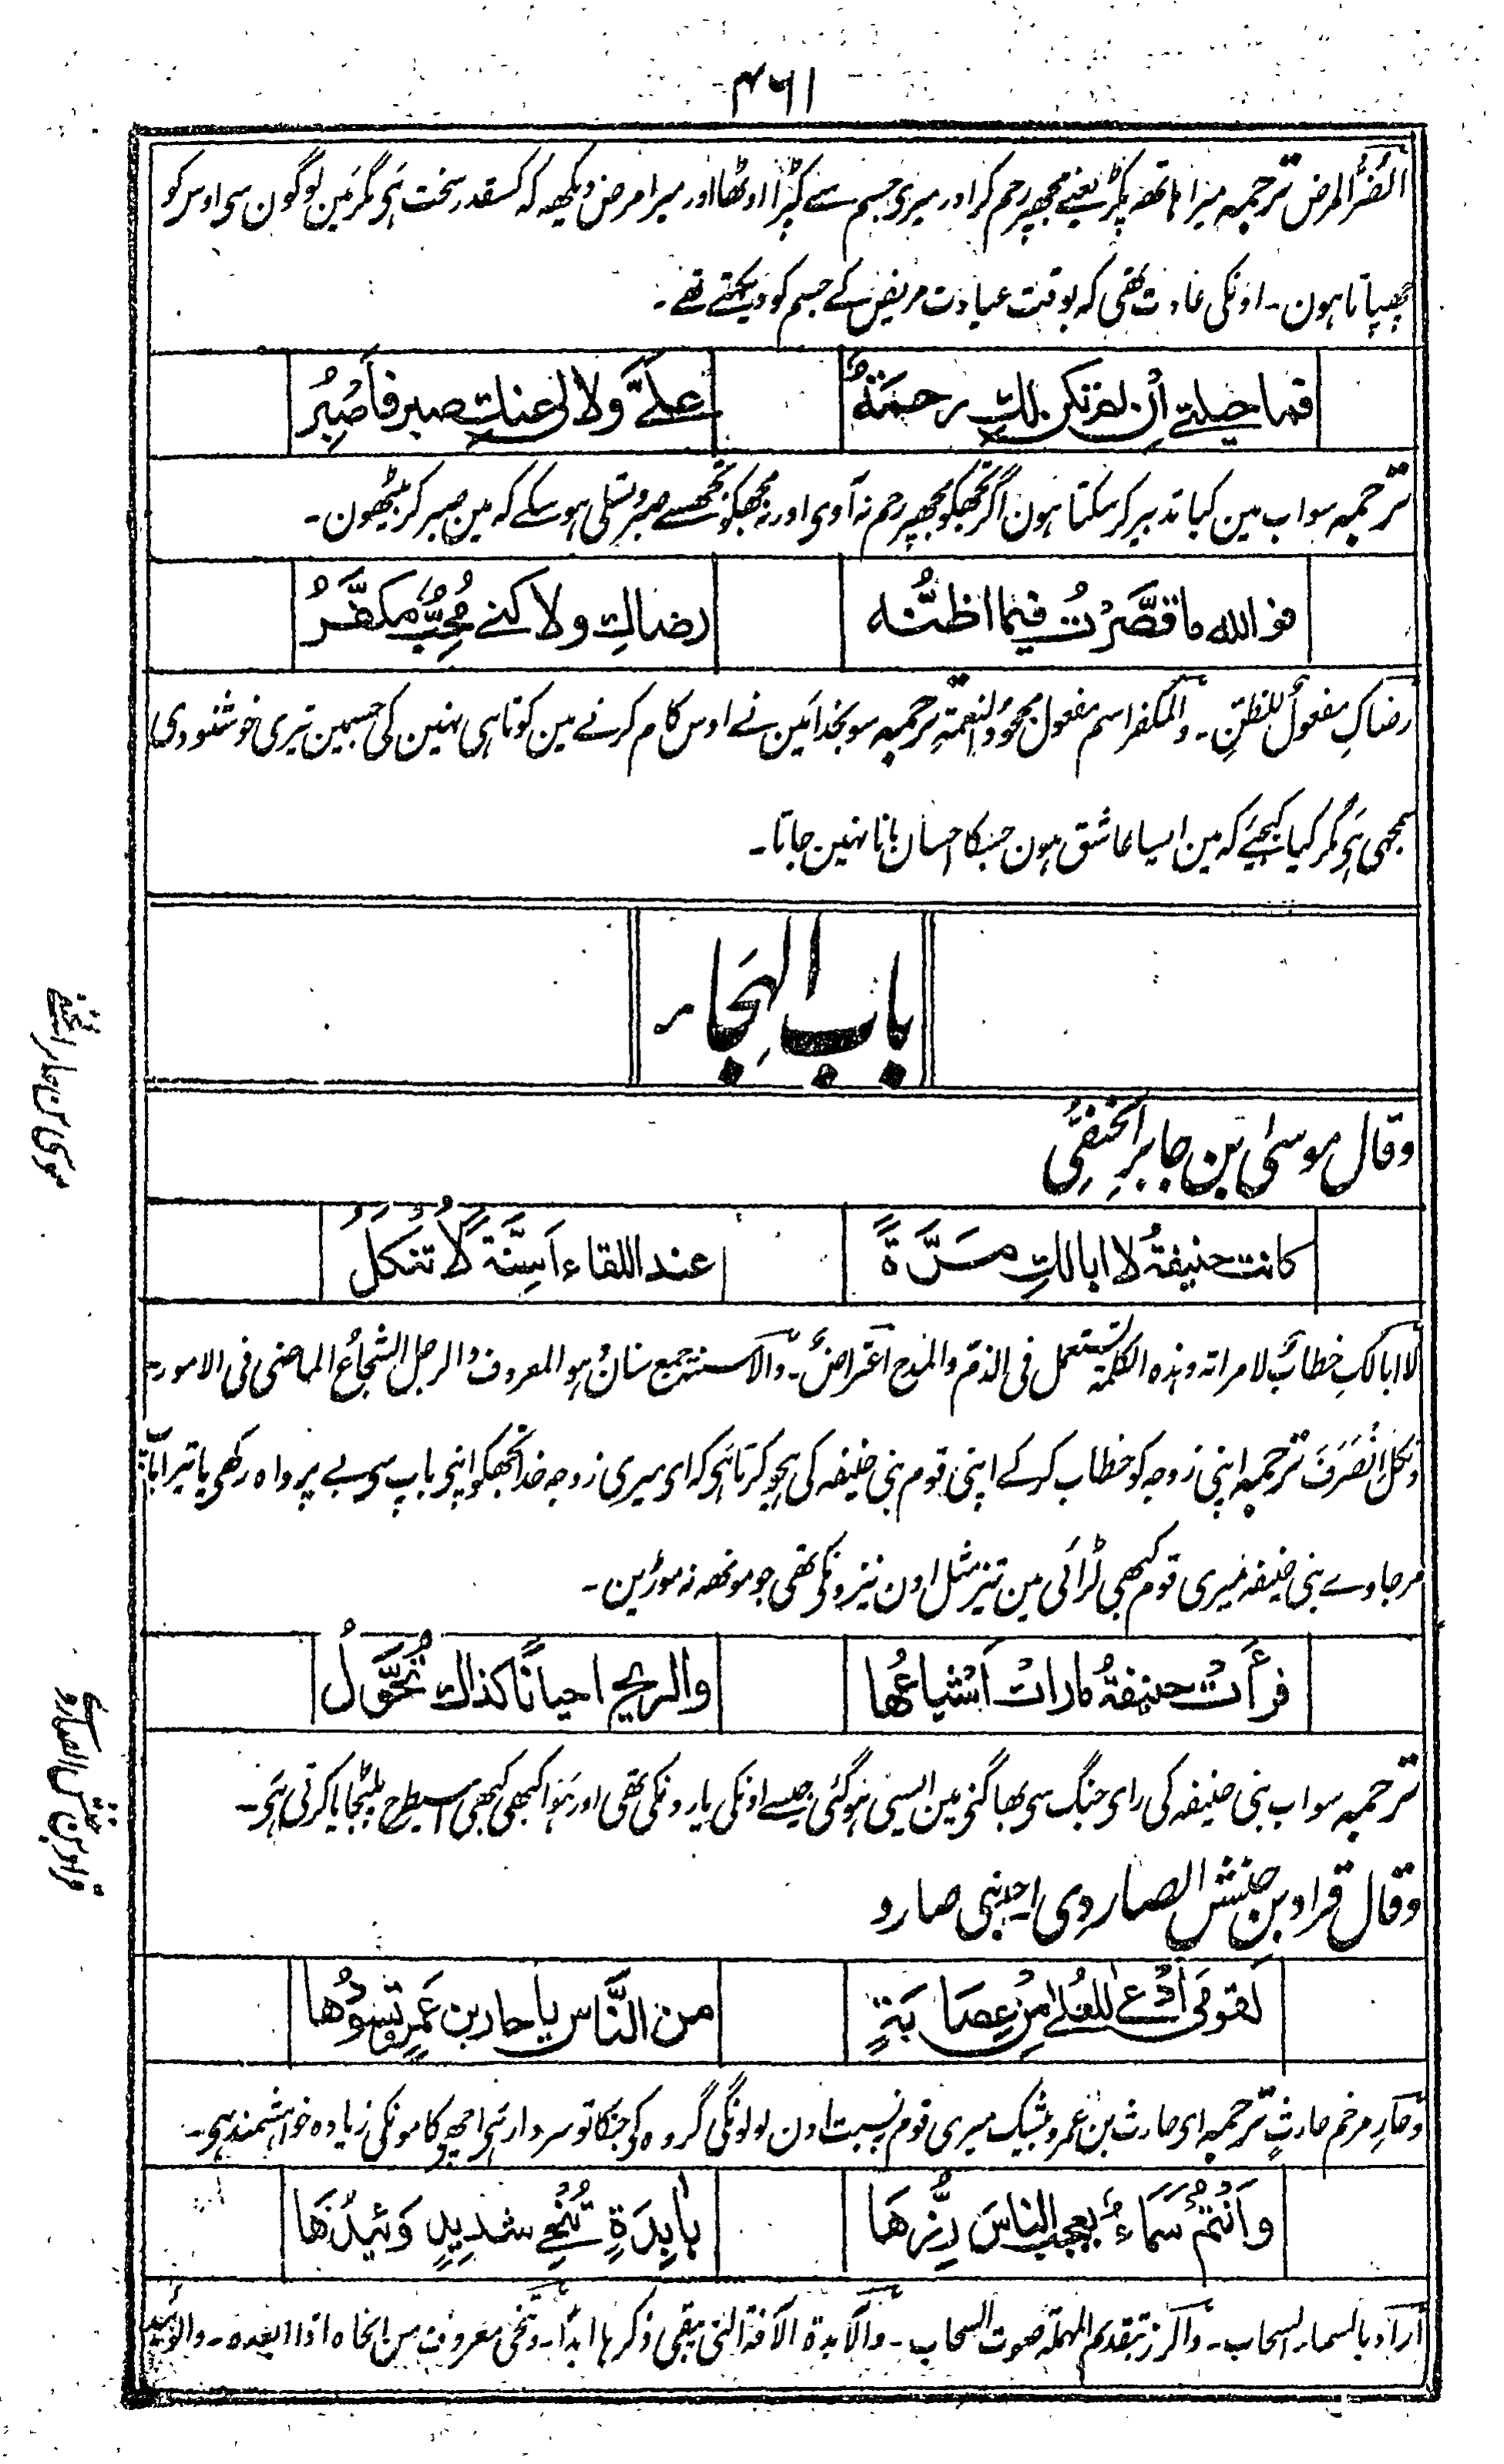 ۴۶۱
الضُرُّ المرض ترجمہ میرا ہاتھ پکڑ یعنے مجھپر رحم کر اور میری جسم سے کپڑا اوٹھا اور میرا مرض دیکھ کہ کسقدر سخت ہَی مگر مَین لوگون سی اوس کو
چھپاتا ہون۔ اونکی عادت تھی کہ بوقت عیادت مریض کے جسم کو دیکھتے تھے۔
فما حیلتے اِن لم تکن لكِ رحمَةٌ
علیَّ ولا لی عنكِ صبر فأصبِرُ
ترجمہ سو اب مین کیا تدبیر کرسکتا ہون اگر تجھکو مجھپر رحم نہ آوی اور نہ مجھکو تجھسے صبر و تسلی ہوسکے کہ مین صبر کر بیٹھون۔
فو اللہ ما قصَّرتُ فیما اظنُّہ
رضاكِ ولا کنے مُحِبٌّ مکفَّرُ
رضاکِ مفعولٌ للظنِ۔ والمکفر اسم مفعول مجحودُ النعمۃِ ترجمہ سو بخدا مَین نے اوس کام کرنے مین کوتاہی نہین کی جسمین تیری خوشنودی
سمجھی ہَی مگر کیا کیجیئے کہ مین ایسا عاشق ہون جسکا احسان مانا نہین جاتا۔
باب الہِجَاء
وقال موسیٰ بن جابر الحنفِیُّ
کانت حنیفۃُ لا ابا لكِ مَرَّةً
عند اللقاء اَسِنَّةً لَا تَنکُلُ
لا ابا لکِ خطابٌ لامراتہ وہذہ الکلمۃ تستعمل فی الذمّ والمدح اعتراضٌ۔ والاسنۃ جمع سنانٌ ہو المعروف والرجل الشجاعُ الماضی فی الامور۔
ونکلَ انصَرَفَ ترجمہ اپنی زوجہ کو خطاب کرکے اپنی قوم بنی حنیفہ کی ہجو کرتا ہَی کہ ای میری زوجہ خدا تجھکو اپنی باپ سی بے پرواہ رکھی یا تیرا باپ
مرجاوے بنی حنیفہ میری قوم کبھی لڑائی مین تیز مثل اون نیزونکی تھی جو مونھہ نہ موڑین۔
فرأت حنیفۃُ ما رات اَشیاعُھا
والریح احیانًا کذالك تُحَوَّلُ
ترجمہ سو اب بنی حنیفہ کی رای جنگ سی بھاگنی مین ایسی ہوگئی جیسے اونکی یارونکی تھی اور ہَوا کبھی کبھی اسیطرح پلٹجایا کرتی ہَی۔
وقال قراد بن حنش الصاردی احد بنی صارد
لقومی اَدْعٰی للعُلٰے مِن عِصَابَةٍ
من النَّاس یا حار بن عَمرٍو تسُودُھا
وحارِ مرخم حارثٍ ترجمہ ای حارث بن عمرو بیشک میری قوم بنسبت اون لوگونکی گروہ کی جنکا تو سردار ہَی اچھی کامونکی زیادہ خواہشمند ہَی۔
وَاَنتُمْ سَمَاءٌ یعجب الناسَ رِزُّھَا
بِاٰبِدَةٍ تُنْحِی شدیدٍ وَئیدُھَا
اراد بالسماء السحاب۔ والرز بتقدیم المہملۃ صوت السحاب۔ والآبدۃ الآفۃ التی یبقی ذکرہا ابدًا۔ وتنحی معروف من انحاہ اذا ابعدہ۔ والوئید